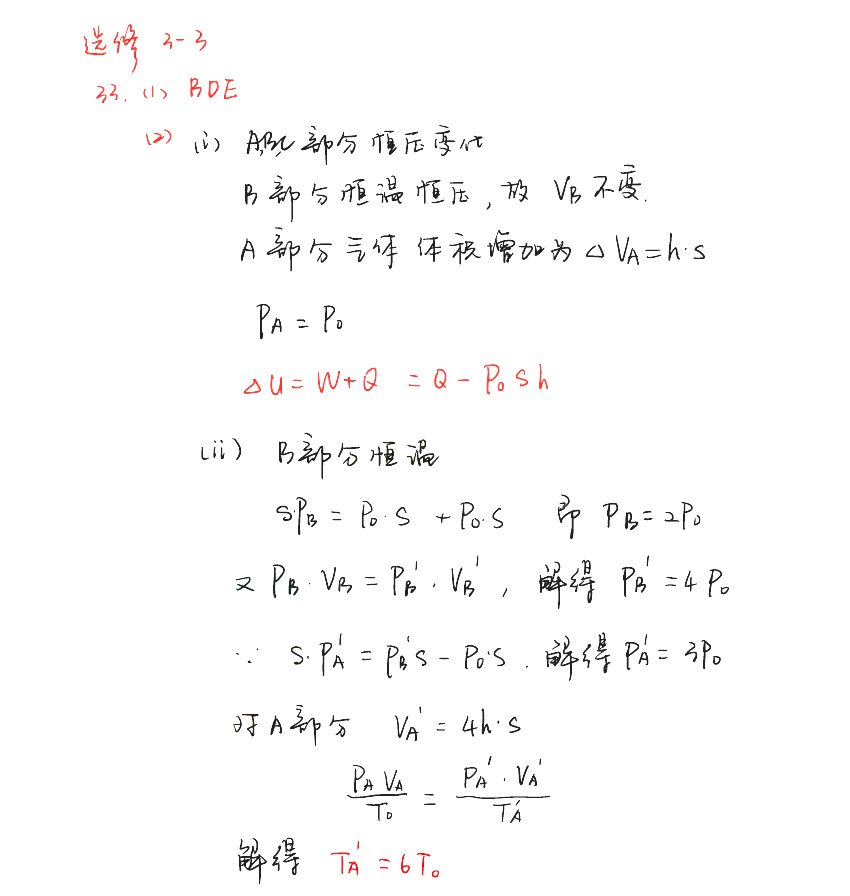 选修 3-3
33. (1) BDE
(2) (i) A,B,C部分恒压变化
B部分恒温恒压,故 VB不变.
A部分气体体积增加为 △VA=h·s
PA = P0
△U = W+Q = Q - P0 S h
(ii) B部分恒温
S·PB = P0·S + P0·S 即 PB=2P0
又 PB·VB = PB'·VB', 解得 PB'=4P0
∵ S·PA' = PB'S - P0·S. 解得 PA'= 3P0
对A部分 VA' = 4h·s
PA VA / T0 = PA'·VA' / TA'
解得 TA' = 6T0